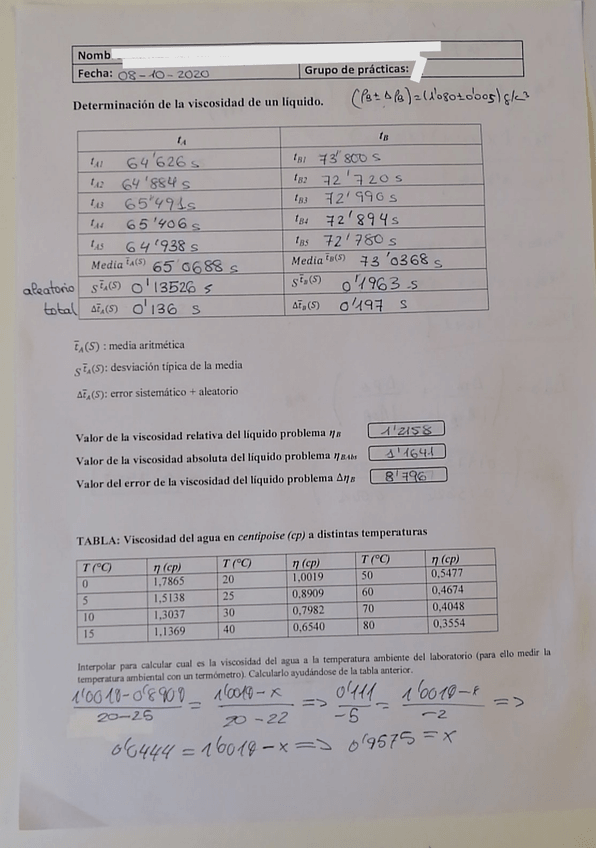 Nomb
Fecha: 08-10-2020 Grupo de prácticas:
Determinación de la viscosidad de un líquido. (ρB ± ΔρB) = (1'080±0'005) g/c³
tA tB
tA1 64'626 s tB1 73'800 s
tA2 64'884 s tB2 72'720 s
tA3 65'491 s tB3 72'990 s
tA4 65'406 s tB4 72'894 s
tA5 64'938 s tB5 72'780 s
Media t̄A(S) 65'0688 s Media t̄B(S) 73'0368 s
aleatorio S t̄A(S) 0'13526 s S t̄B(S) 0'1963 s
total Δt̄A(S) 0'136 s Δt̄B(S) 0'197 s
t̄A(S) : media aritmética
S t̄A(S): desviación típica de la media
Δt̄A(S): error sistemático + aleatorio
Valor de la viscosidad relativa del líquido problema ηB 1'2158
Valor de la viscosidad absoluta del líquido problema ηBAbs 1'1641
Valor del error de la viscosidad del líquido problema ΔηB 8'796
TABLA: Viscosidad del agua en centipoise (cp) a distintas temperaturas
T (ºC) η (cp) T (ºC) η (cp) T (ºC) η (cp)
0 1,7865 20 1,0019 50 0,5477
5 1,5138 25 0,8909 60 0,4674
10 1,3037 30 0,7982 70 0,4048
15 1,1369 40 0,6540 80 0,3554
Interpolar para calcular cual es la viscosidad del agua a la temperatura ambiente del laboratorio (para ello medir la
temperatura ambiental con un termómetro). Calcularlo ayudándose de la tabla anterior.
1'0019-0'8909 / 20-25 = 1'0019-x / 20-22 => 0'111 / -5 = 1'0019-x / -2 =>
0'0444 = 1'0019-x => 0'9575 = x